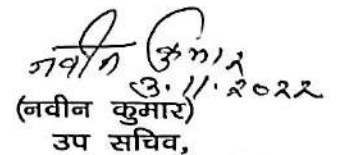 नवीन कुमार
3.11.2022
(नवीन कुमार)
उप सचिव,